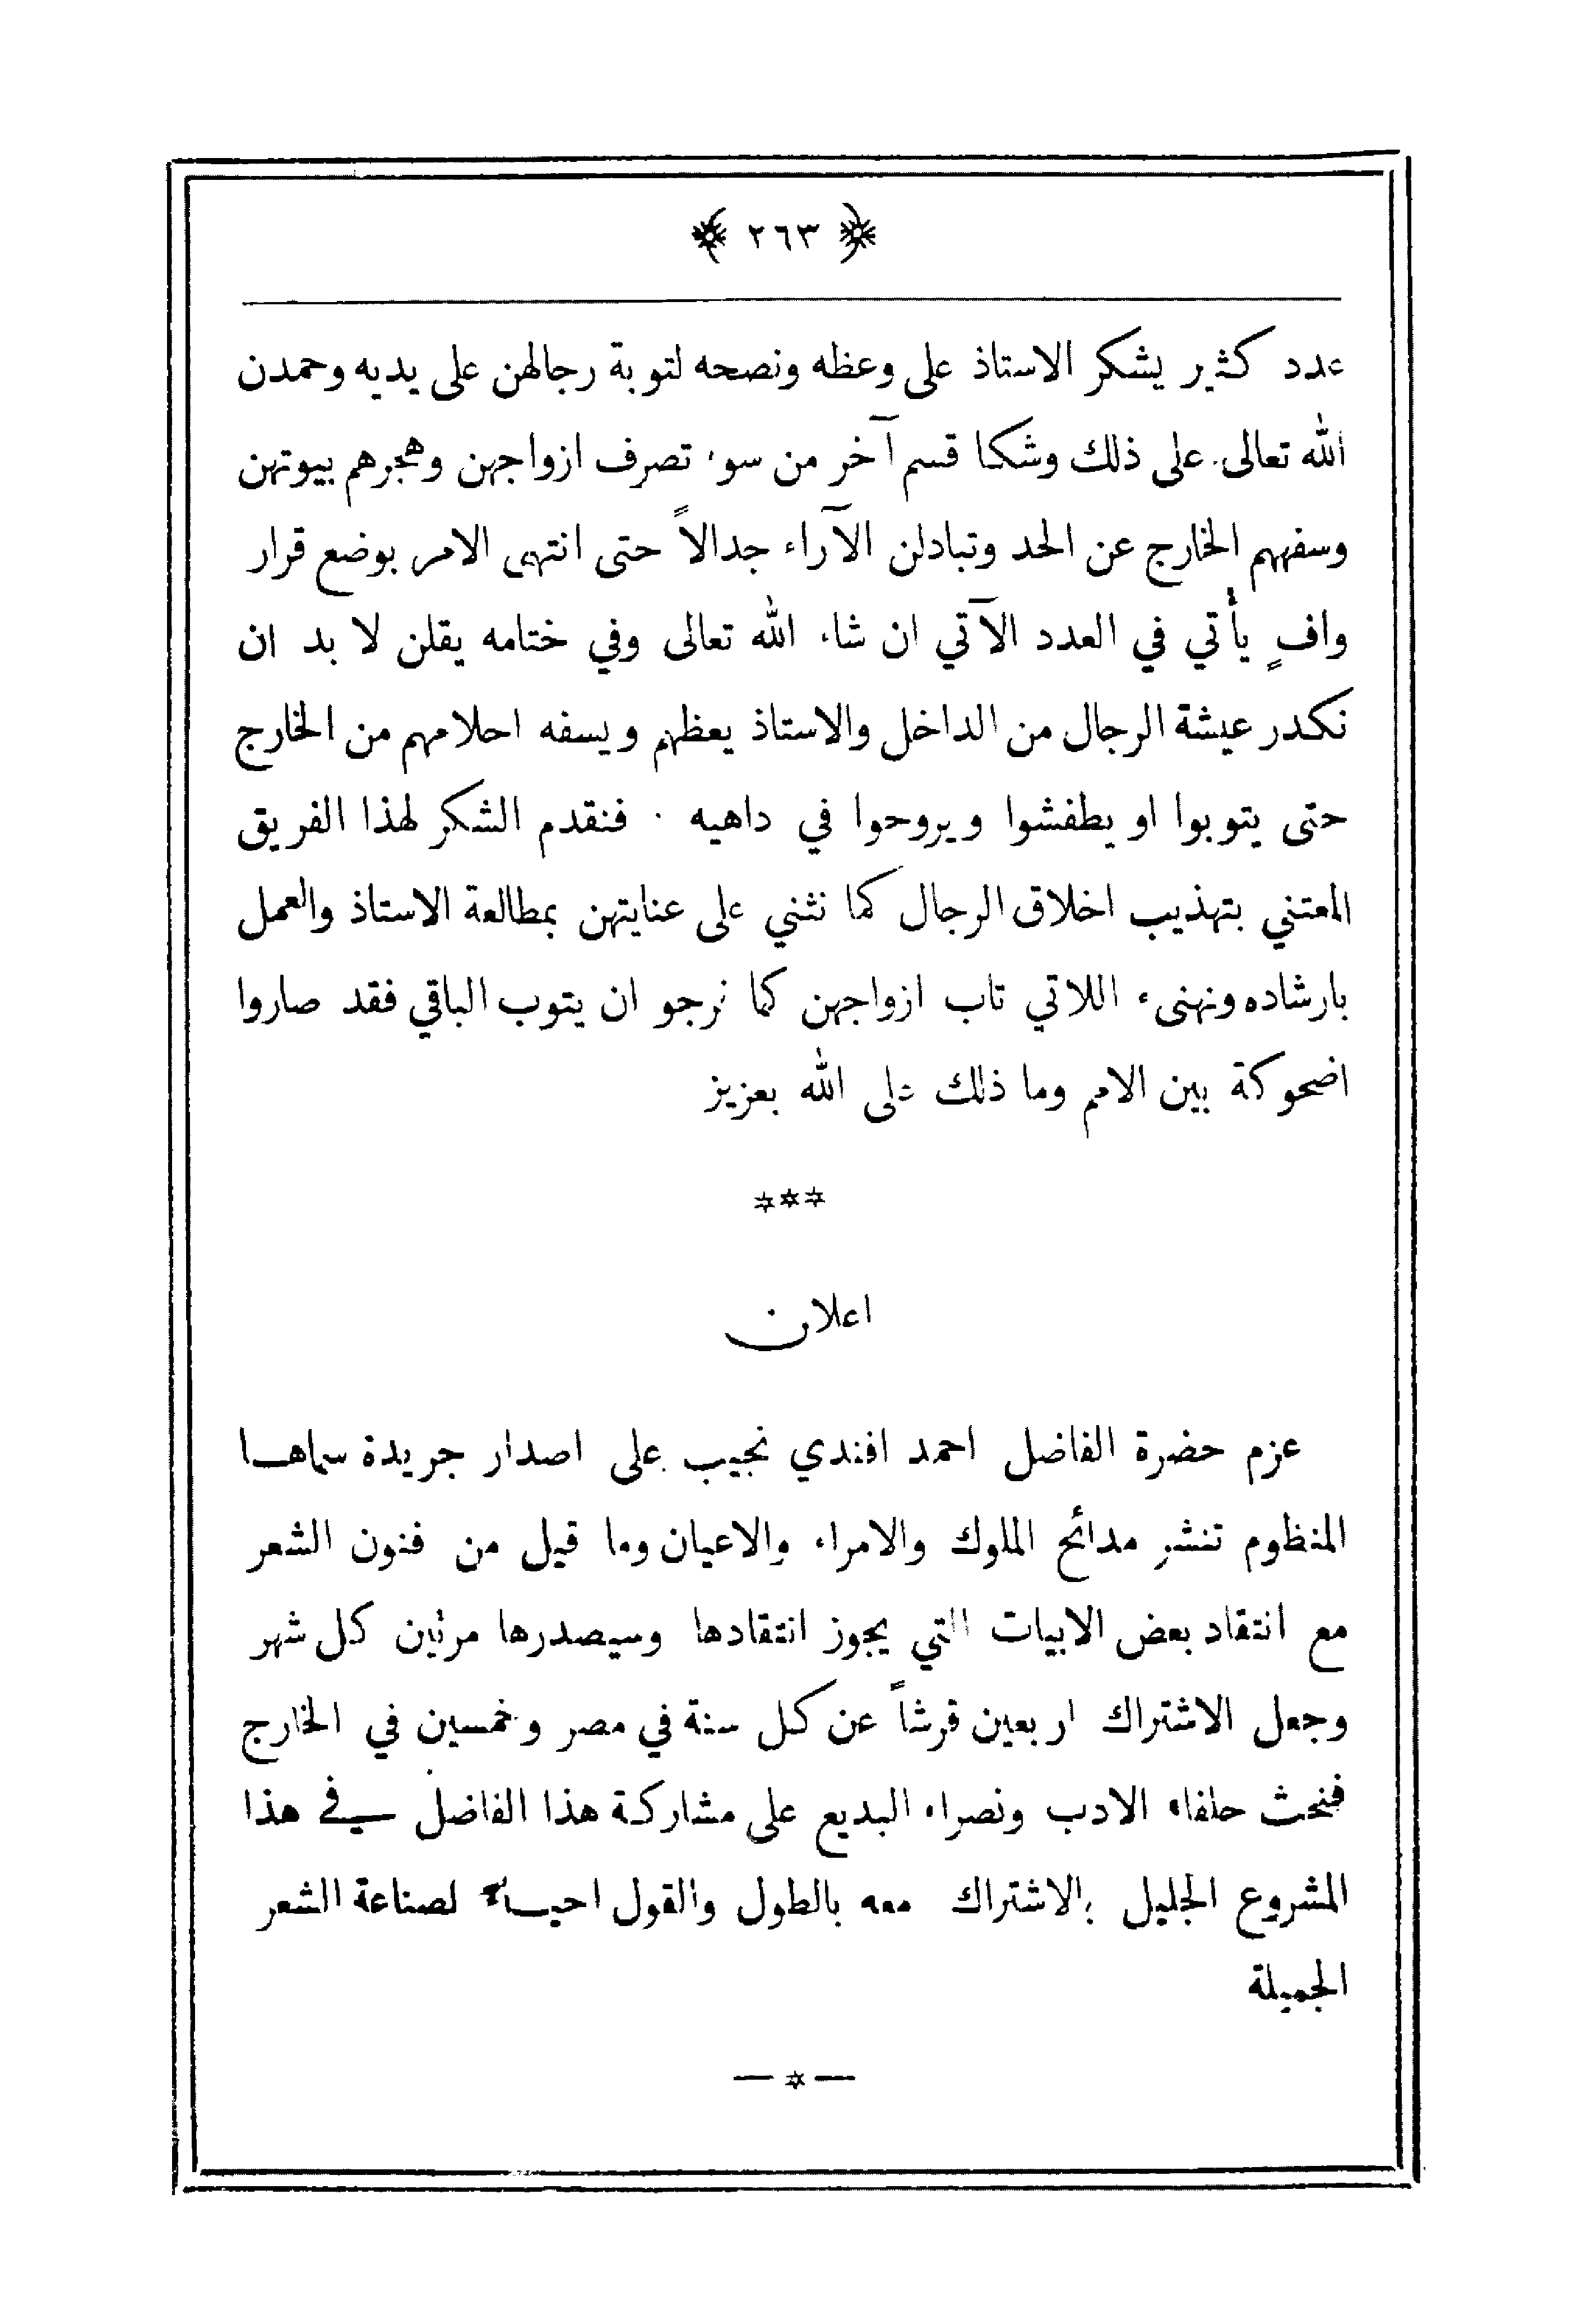 ﴿ ٢٦٣ ﴾
عدد كثير يشكر الاستاذ على وعظه ونصحه لتوبة رجالهن على يديه وحمدن
الله تعالى على ذلك وشكا قسم آخر من سوء تصرف ازواجهن وهجرهم بيوتهن
وسفههم الخارج عن الحد وتبادلن الآراء جدالاً حتى انتهى الامر بوضع قرار
وافٍ يأتي في العدد الآتي ان شاء الله تعالى وفي ختامه يقلن لا بد ان
نكدر عيشة الرجال من الداخل والاستاذ يعظهم ويسفه احلامهم من الخارج
حتى يتوبوا او يطفشوا ويروحوا في داهيه . فنقدم الشكر لهذا الفريق
المعتني بتهذيب اخلاق الرجال كما نثني على عنايتهن بمطالعة الاستاذ والعمل
بارشاده ونهنىء اللاتي تاب ازواجهن كما نرجو ان يتوب الباقي فقد صاروا
اضحوكة بين الامم وما ذلك على الله بعزيز
***
اعلان
عزم حضرة الفاضل احمد افندي نجيب على اصدار جريدة سماها
المنظوم تنشر مدائح الملوك والامراء والاعيان وما قيل من فنون الشعر
مع انتقاد بعض الابيات التي يجوز انتقادها وسيصدرها مرتين كل شهر
وجعل الاشتراك اربعين قرشاً عن كل سنة في مصر وخمسين في الخارج
فنحث حلفاء الادب ونصراء البديع على مشاركة هذا الفاضل في هذا
المشروع الجليل بالاشتراك معه بالطول والقول احياء لصناعة الشعر
الجميلة
— * —